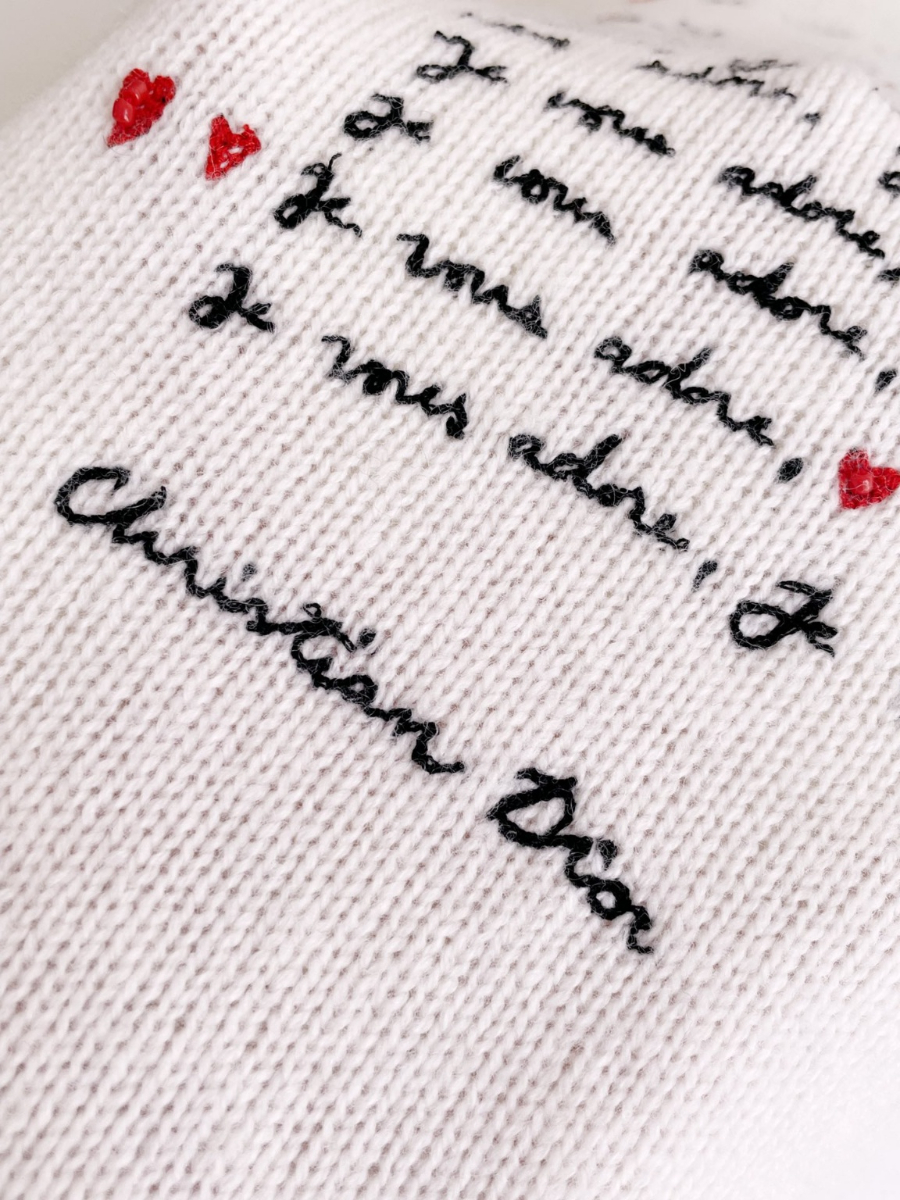 adore,
Je vous adore,
Je vous adore,
Je vous adore,
Je vous adore, Je
Christian Dior